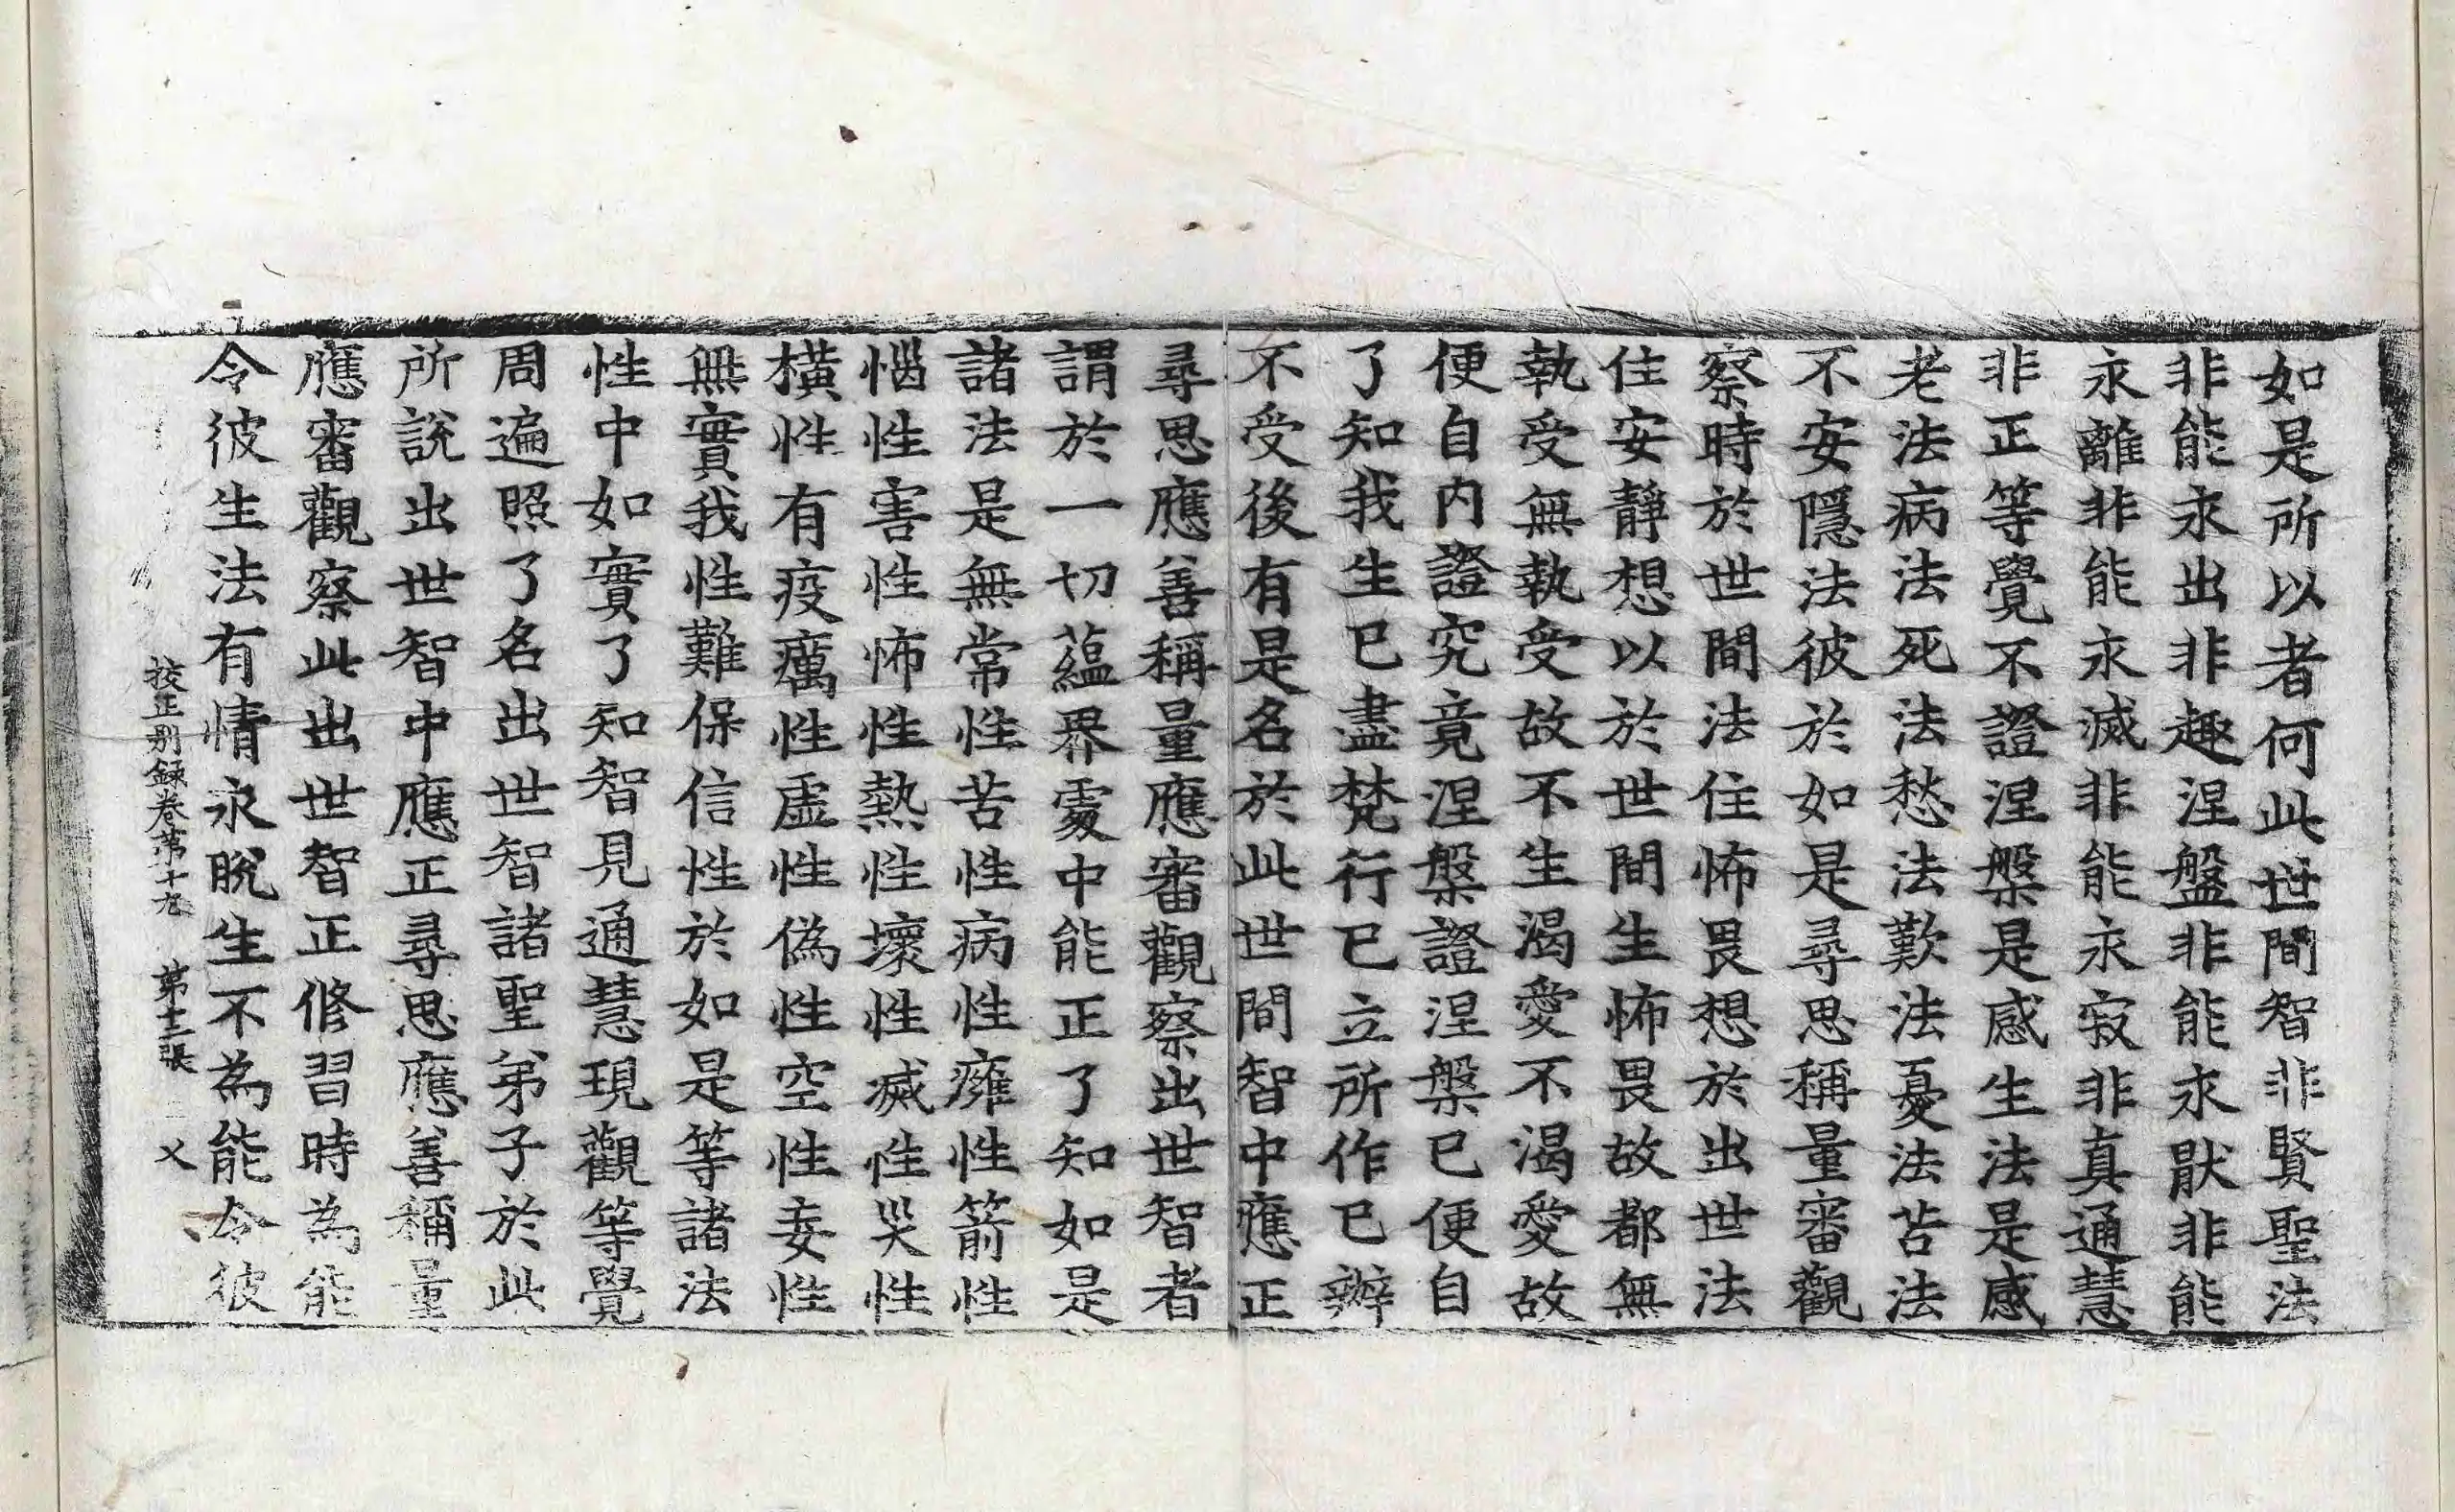 如是所以者何此世間智非賢聖法
非能永出非趣涅盤非能永猒非能
永離非能永滅非能永寂非真通慧
非正等覺不證涅槃是感生法是感
老法病法死法愁法歎法憂法苦法
不安隱法彼於如是尋思稱量審觀
察時於世間法住怖畏想於出世法
住安靜想以於世間生怖畏故都無
執受無執受故不生渴愛不渴愛故
便自内證究竟涅槃證涅槃已便自
了知我生已盡梵行已立所作已辦
不受後有是名於此世間智中應正
尋思應善稱量應審觀察出世智者
謂於一切蘊界處中能正了知如是
諸法是無常性苦性病性癰性箭性
惱性害性怖性熱性壞性滅性災性
橫性有疫癘性虛性偽性空性妄性
無實我性難保信性於如是等諸法
性中如實了知智見通慧現觀等覺
周遍照了名出世智諸聖弟子於此
所說出世智中應正尋思應善稱量
應審觀察此出世智正修習時為能
令彼生法有情永脫生不為能令彼
挍正別録卷第十九 第十三張 乂